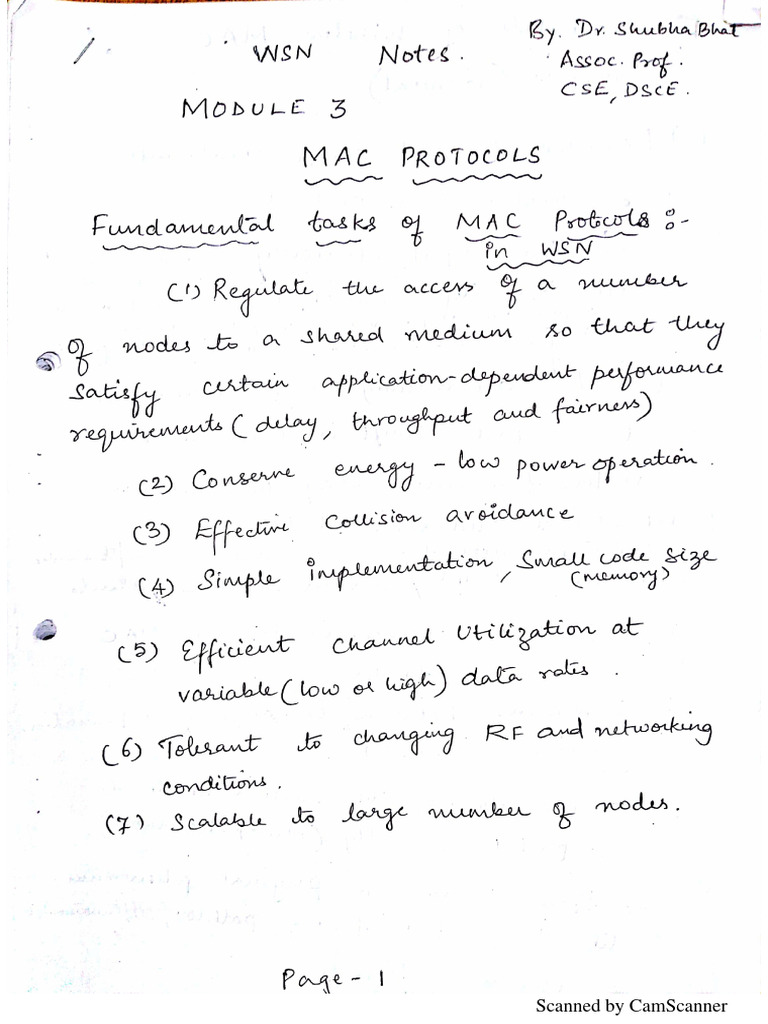 By. Dr. Shubha Bhat
WSN Notes.
Assoc. Prof.
CSE, DSCE.
MODULE 3
MAC PROTOCOLS
Fundamental tasks of MAC Protocols :-
in WSN
(1) Regulate the access of a number
of nodes to a shared medium so that they
satisfy certain application-dependent performance
requirements (delay, throughput and fairness)
(2) Conserve energy - low power operation.
(3) Effective Collision avoidance
(4) Simple implementation, Small code size
(memory)
(5) Efficient Channel Utilization at
variable (low or high) data rates.
(6) Tolerant to changing RF and networking
conditions.
(7) Scalable to large number of nodes.
Page - 1
Scanned by CamScanner